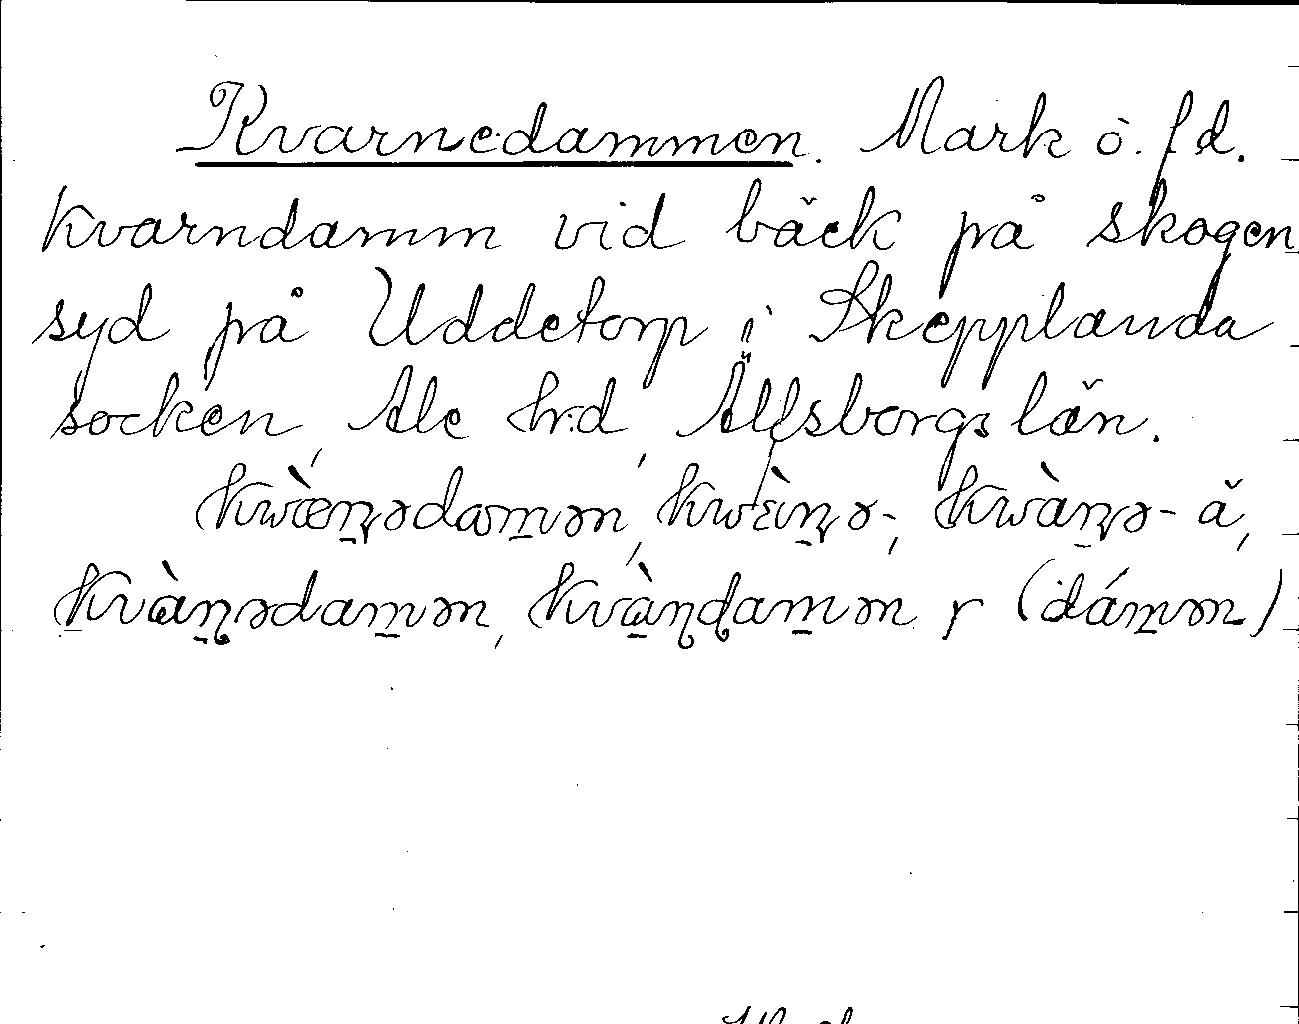 Kvarnedammen. Mark o. f d.
kvarndamm vid bäck på skogen
syd på Uddetorp i Skepplanda
socken, Ale hrd, Älfsborgs län.
kwæ̀ṉədam̱ən, kwɛ̀ṉə-, kwàṉə- ä,
kvàṉədam̱ən, kvàɳɖam̱ən r (dám̱ən)